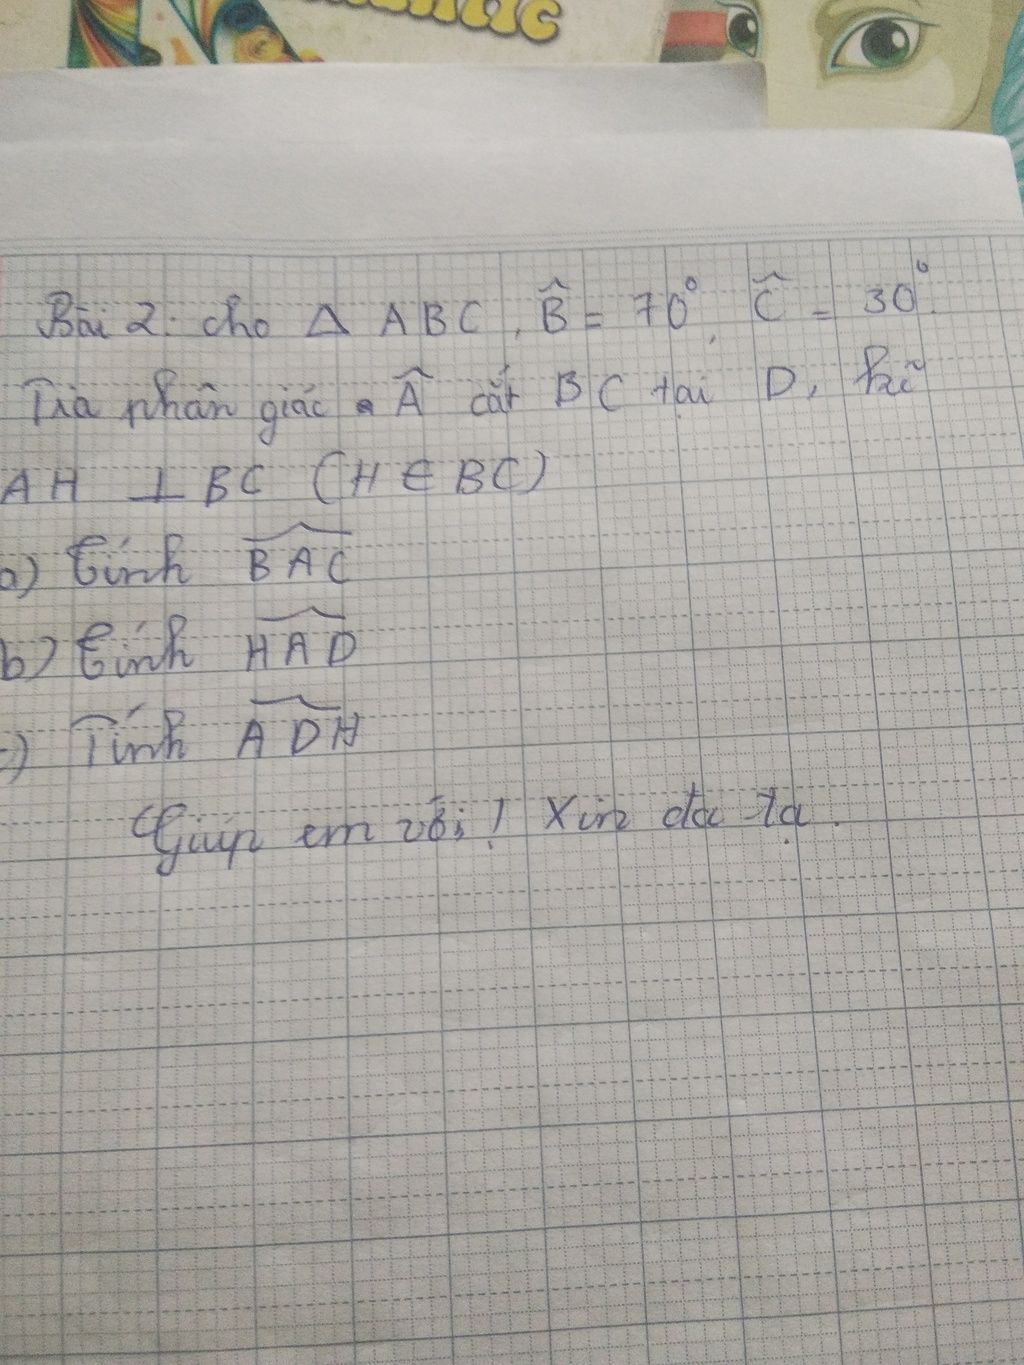 Bài 2: cho Δ ABC, B̂ = 70°, Ĉ = 30°.
Tia phân giác Â cắt BC tại D, kẻ
AH ⊥ BC (H ∈ BC)
a) Tính BAC
b) Tính HAD
c) Tính ADH
Giúp em với! Xin đa tạ.